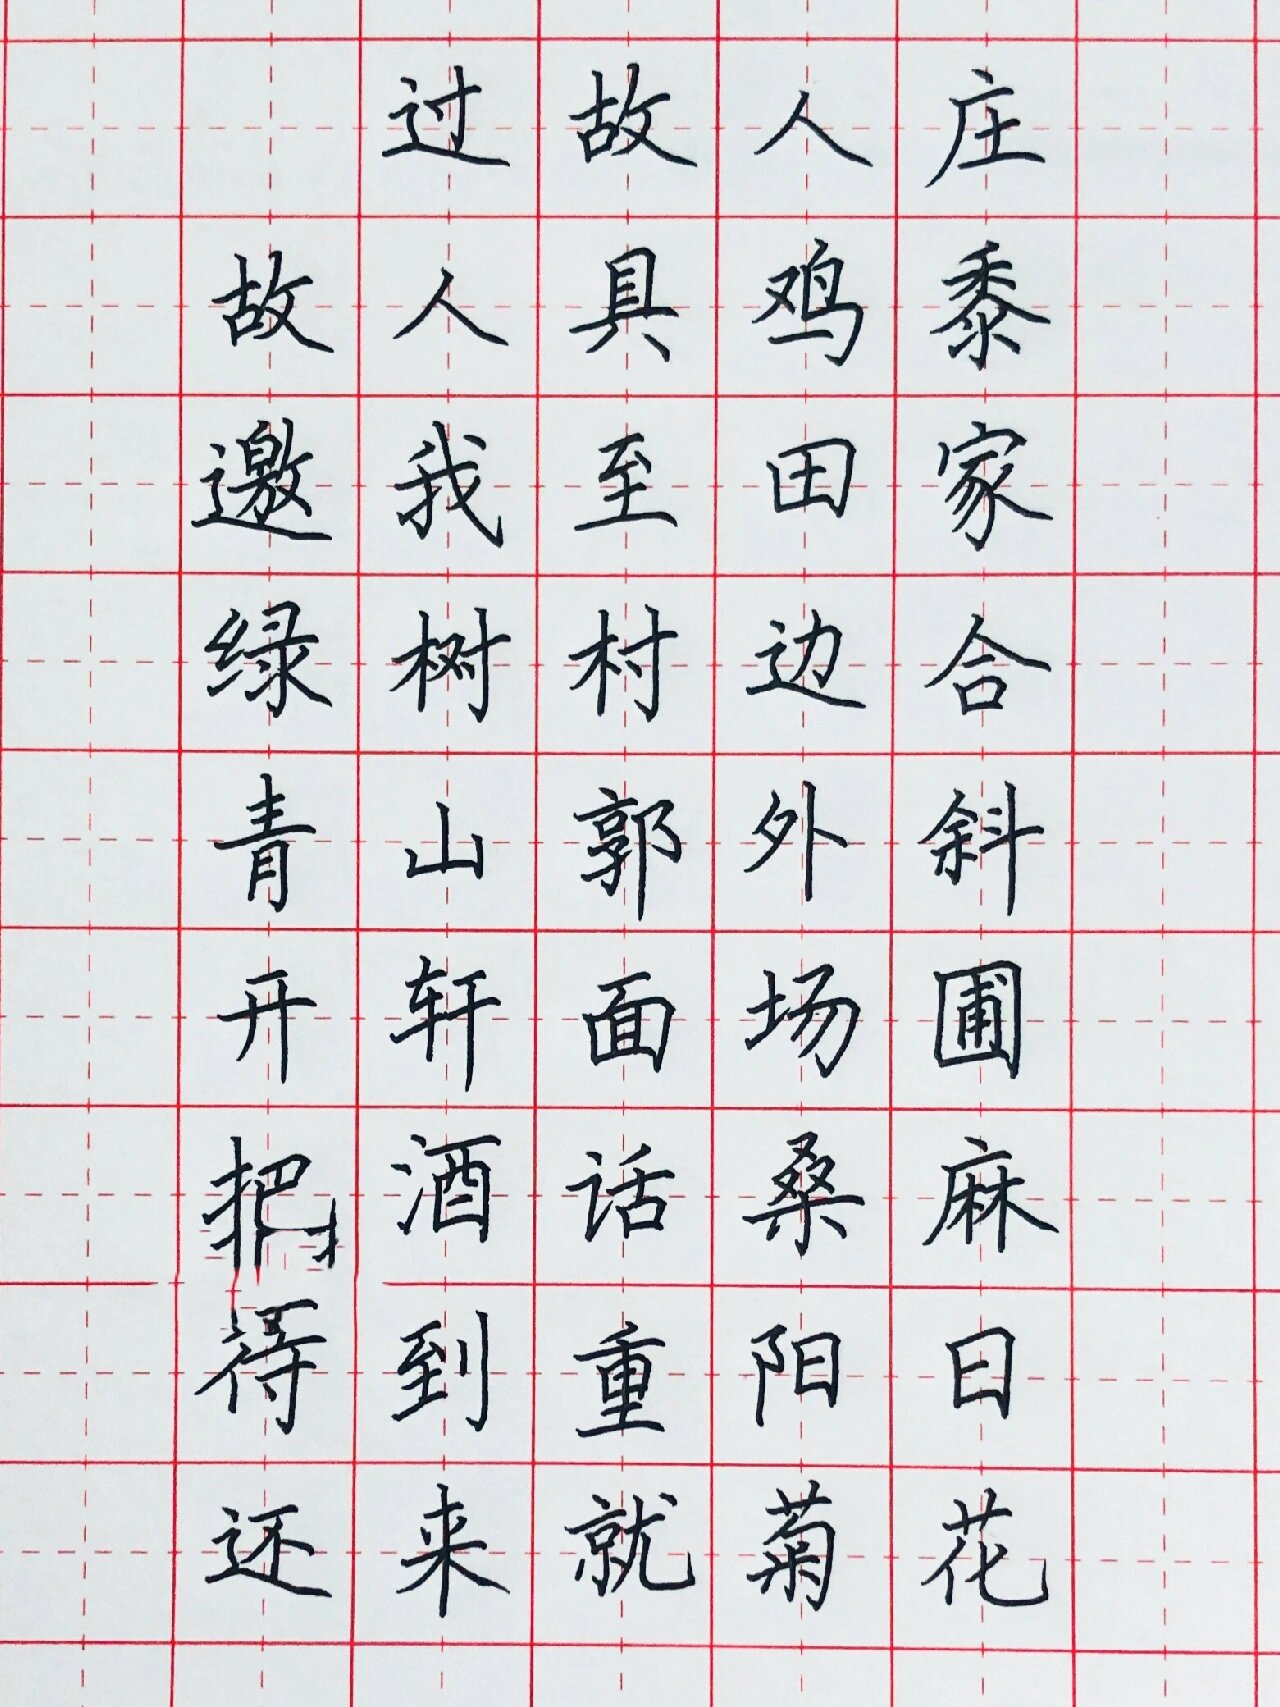 过故人庄
故人具鸡黍
邀我至田家
绿树村边合
青山郭外斜
开轩面场圃
把酒话桑麻
到重阳日
还来就菊花